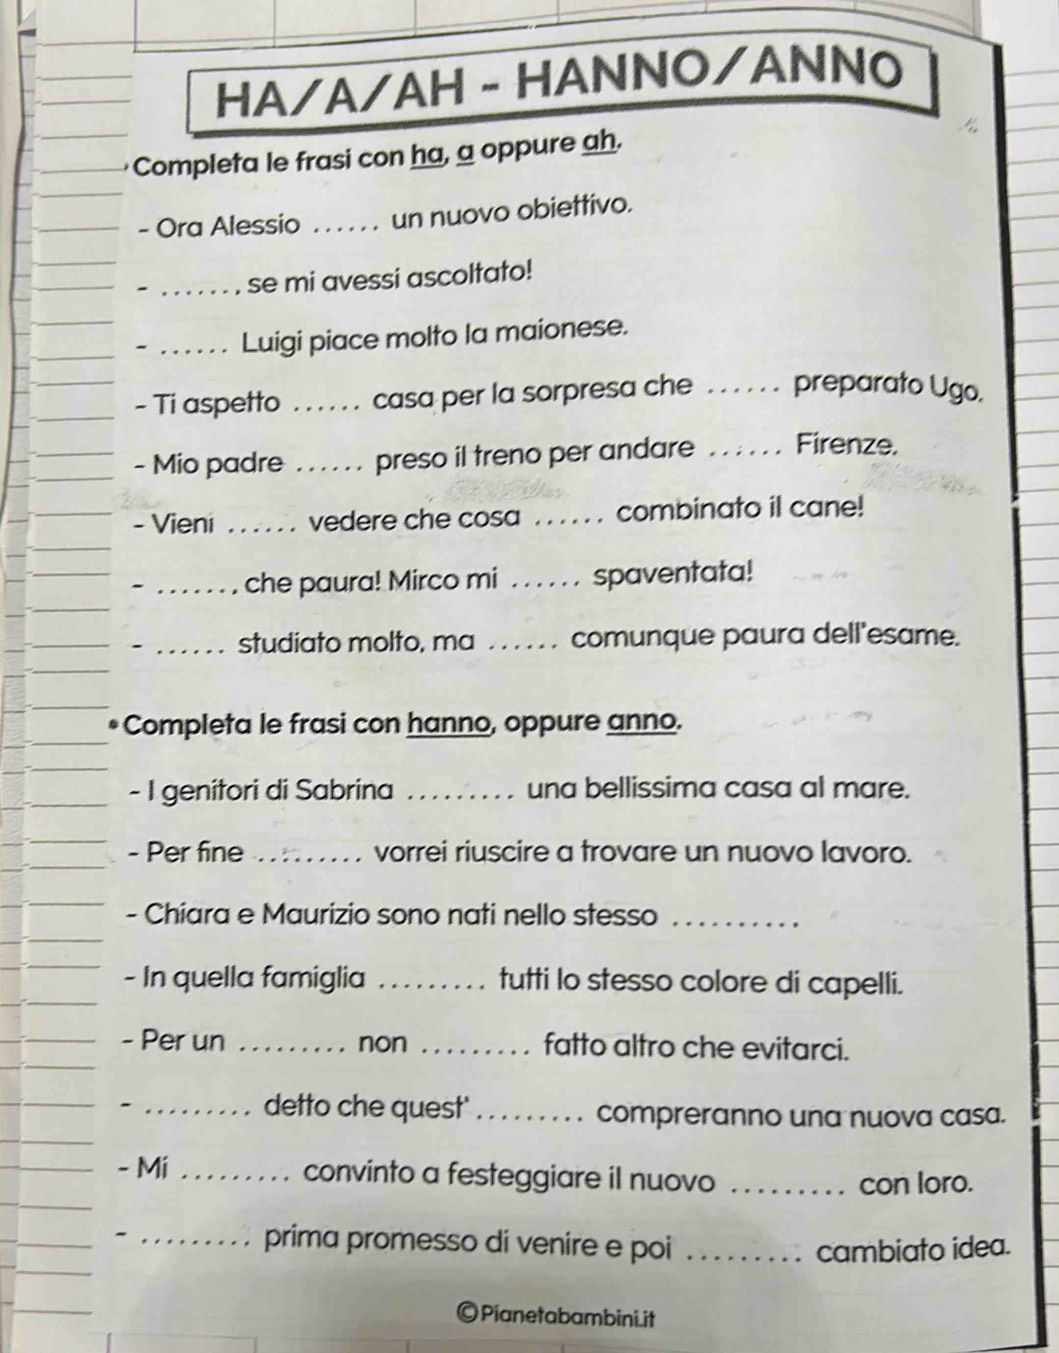 HA/A/AH - HANNO/ANNO
• Completa le frasi con ha, a oppure ah.
- Ora Alessio ...... un nuovo obiettivo.
- ......., se mi avessi ascoltato!
- ...... Luigi piace molto la maionese.
- Ti aspetto ...... casa per la sorpresa che ...... preparato Ugo.
- Mio padre ...... preso il treno per andare ...... Firenze.
- Vieni ...... vedere che cosa ...... combinato il cane!
- ......., che paura! Mirco mi ...... spaventata!
- ...... studiato molto, ma ...... comunque paura dell'esame.
• Completa le frasi con hanno, oppure anno.
- I genitori di Sabrina ......... una bellissima casa al mare.
- Per fine ......... vorrei riuscire a trovare un nuovo lavoro.
- Chiara e Maurizio sono nati nello stesso ..........
- In quella famiglia ......... tutti lo stesso colore di capelli.
- Per un ......... non ......... fatto altro che evitarci.
- ......... detto che quest' ......... compreranno una nuova casa.
- Mi ......... convinto a festeggiare il nuovo ......... con loro.
- ......... prima promesso di venire e poi ......... cambiato idea.
©Pianetabambini.it